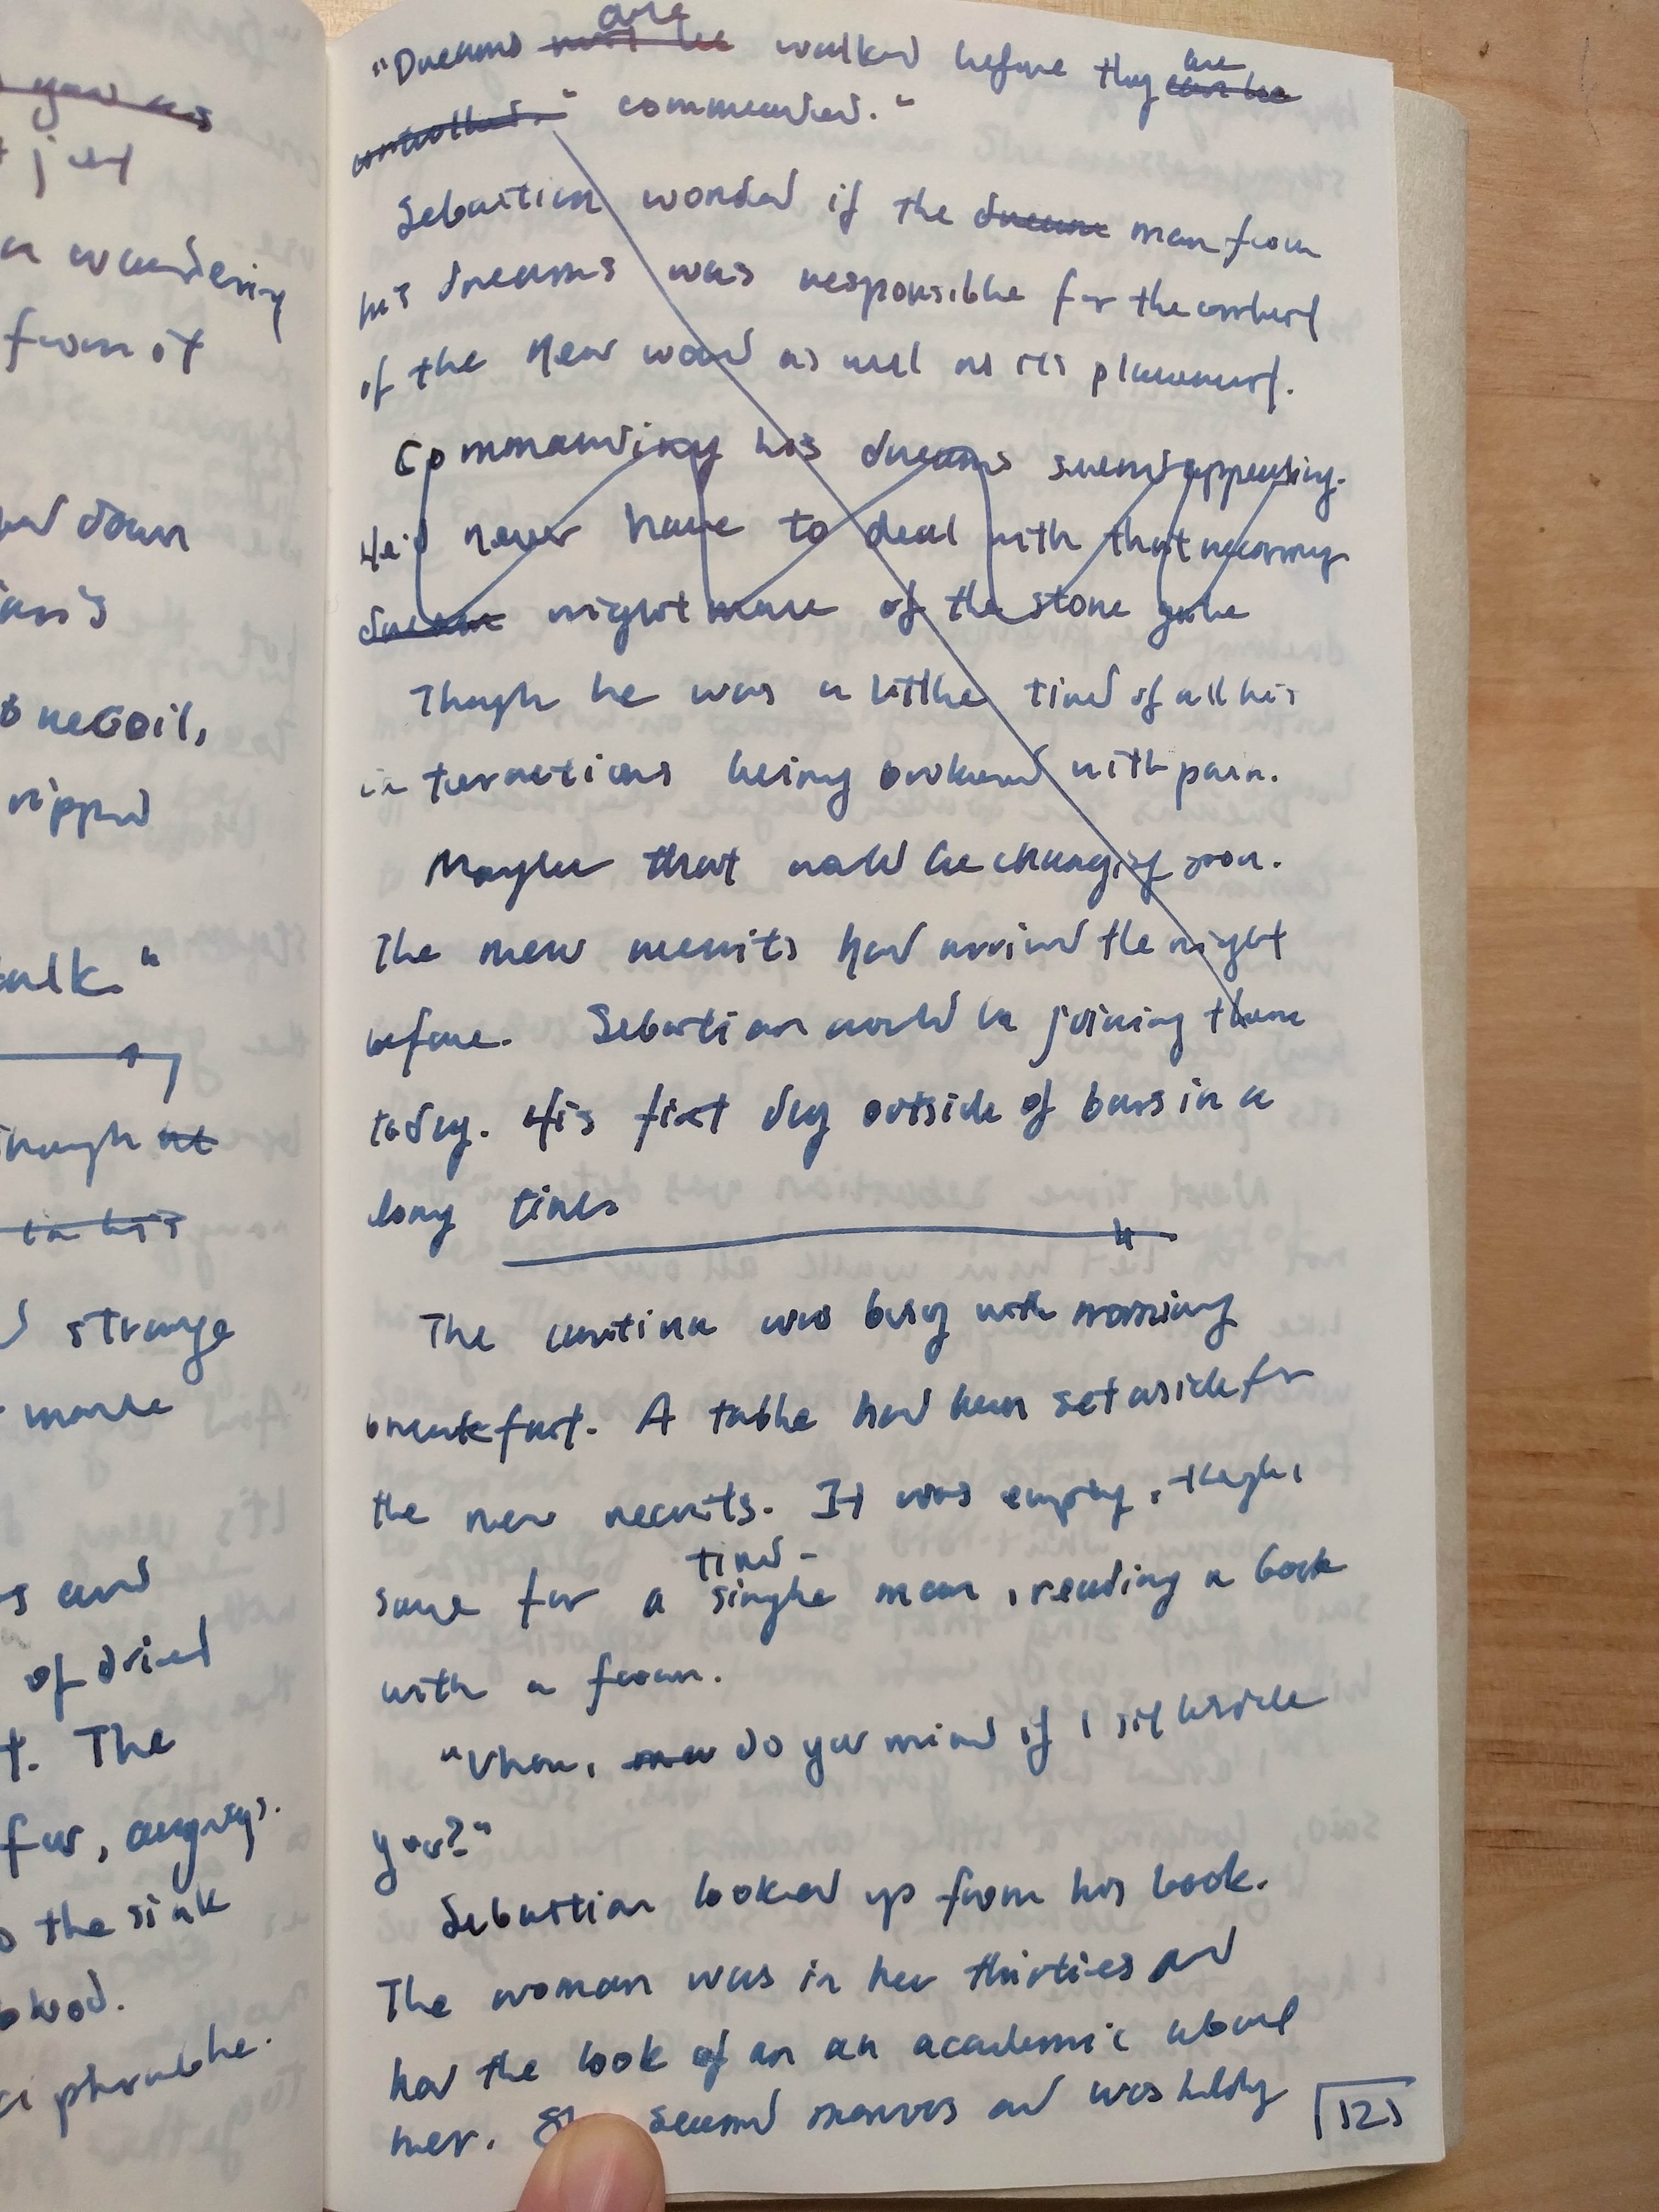 you as
jet
a wandering
from it
down
recoil,
ripped
talk."
though at
in his
strange
make
and
of dried
t. The
far, anyways.
the sink
blood.
are
"Dreams must be walked before they can be
are
controlled." commanded."
Sebastian wonded if the dream man from
his dreams was responsible for the content
of the new word as well as its placement.
Commanding his dreams seems appealing.
He'd never have to deal with that reccurring
dream nightmare of the stone gate
Though he was a little tired of all his
interactions being ordered with pain.
Maybe that would be changing soon.
The new recruits had arrived the night
before. Sebastian would be joining them
today. His first day outside of bars in a
long time.
The cantina was busy with morning
breakfast. A table had been set aside for
the new recruits. It was empty, though,
tired-
save for a single man, reading a book
with a frown.
do you mind if I sit beside
you?"
Sebastian looked up from his book.
The woman was in her thirties and
had the look of an an academic about
her. seemed nervous and was holding
121